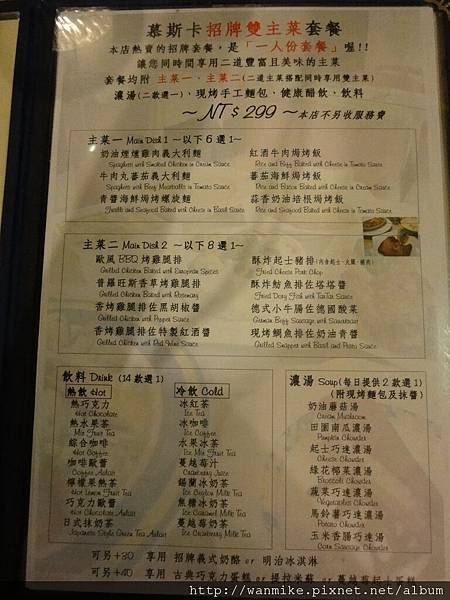 慕斯卡招牌雙主菜套餐
本店熱賣的招牌套餐，是「一人份套餐」喔!!
讓您同時間享用二道豐富且美味的主菜
套餐均附 主菜一、主菜二(二道主菜搭配同時享用雙主菜)
濃湯(二款選一)、現烤手工麵包、健康醋飲、飲料
～ NT$ 299 ～本店不另收服務費
主菜一 Main Dish 1 ～以下 6 選 1～
奶油煙燻雞肉義大利麵
Spaghetti with Smoked Chicken in Cream Sauce
牛肉丸蕃茄義大利麵
Spaghetti with Beef Meatballs in Tomato Sauce
青醬海鮮焗烤螺旋麵
Fusilli and Seafood Baked with Cheese in Basil Sauce
紅酒牛肉焗烤飯
Rice and Beef Baked with Cheese in Tomato Sauce
蕃茄海鮮焗烤飯
蒜香奶油培根焗烤飯
主菜二 Main Dish 2 ～以下 8 選 1～
歐風 BBQ 烤雞腿排
Grilled Chicken Baked with European Spices
普羅旺斯香草烤雞腿排
Grilled Chicken Baked with Rosemary
香烤雞腿排佐黑胡椒醬
Grilled Chicken with Pepper Sauce
香烤雞腿排佐特製紅酒醬
Grilled Chicken with Red Wine Sauce
酥炸起士豬排
Fried Cheese Pork Chop
酥炸魴魚排佐塔塔醬
Fried Dory Fish with TarTar Sauce
德式小牛腸佐德國酸菜
German Beef Sausage with Sauerkraut
現烤鯛魚排佐奶油青醬
飲料 Drink (14 款選 1)
熱飲 Hot
熱巧克力
Hot Chocolate
熱水果茶
Mix Fruit Tea
綜合咖啡
Hot Coffee
咖啡歐蕾
Coffee Aulait
檸檬果熱茶
Hot Lemon Fruit Tea
巧克力歐蕾
Hot Chocolate Aulait
日式抹奶茶
Japanese Style Green Tea Aulait
冷飲 Cold
冰紅茶
Ice Tea
冰咖啡
Ice Coffee
水果冰茶
Ice Mix Fruit Tea
蔓越莓汁
Cranberry Juice
錫蘭冰奶茶
Ice Ceylon Milk Tea
焦糖冰奶茶
Ice Caramel Milk Tea
蔓越莓奶茶
Ice Cranberry Milk Tea
濃湯 Soup(每日提供 2 款選 1)
(附現烤麵包及抹醬)
奶油蘑菇湯
Cream Mushroom
田園南瓜濃湯
Pumpkin Chowder
起士巧達濃湯
Cheese Chowder
綠花椰菜濃湯
Broccoli Chowder
蔬菜巧達濃湯
Vegetables Chowder
馬鈴薯巧達濃湯
Potato Chowder
玉米香腸巧達湯
Corn Sausage Chowder
可另+30 享用 招牌義式奶酪 or 明治冰淇淋
可另+40 享用 古典巧克力蛋糕 or 提拉米蘇 or 蔓越莓起士蛋糕
http://wanmike.pixnet.net/album